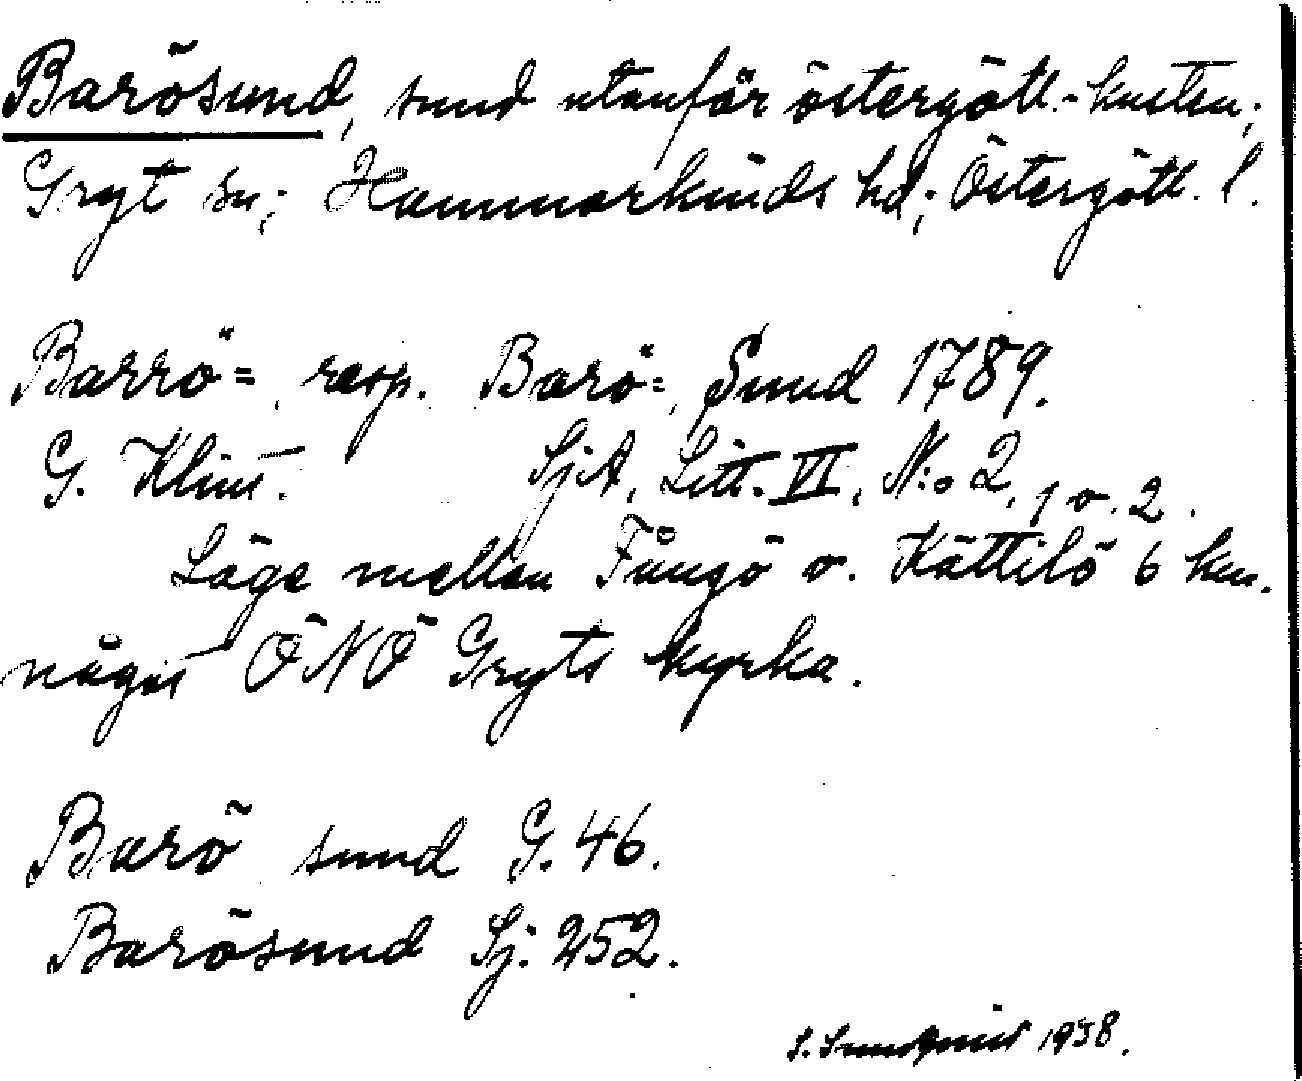 Barösund, sund utanför östergötl.-kusten;
Gryt sn; Hammarkinds hd; Östergötl. l.
Barrö= resp. Barö= Sund 1789.
G. Klint. SjA, Litt. VI, N:o 2, 1 o. 2.
Läge mellan Fångö o. Kättilö 6 km.
något ÖNÖ Gryts kyrka.
Barö sund G. 46.
Barösund Sj. 252.
S. Sundqvist 1938.